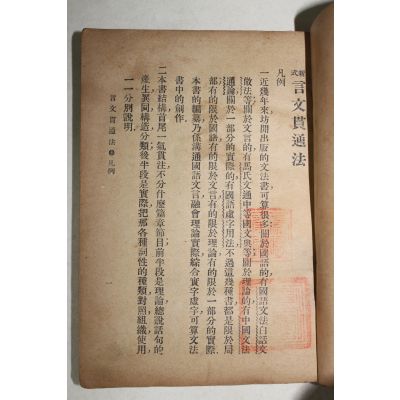 新式言文貫通法
凡例
一近幾年來坊開出版的文法書可算很多關於國語的有國語文法白話文
做法等關於文言的有馬氏文通中等國文典等關於理論的有中國文法
通論關於一部分的實際的有國語虛字用法不過這幾種書都是限於局
部有的限於國語有的限於文言有的限於理論有的限於一部分的實際
本書的編纂乃係溝通國語文言融會理論實際綜合實字虛字可算文法
書中的創作
二本書結構首尾一氣貫注不分什麼篇章節目前半段是理論總說話句的
產生異同構造分類後半段是實際把那各種詞性的種類對照組織使用
一一分別說明
言文貫通法 凡例
一